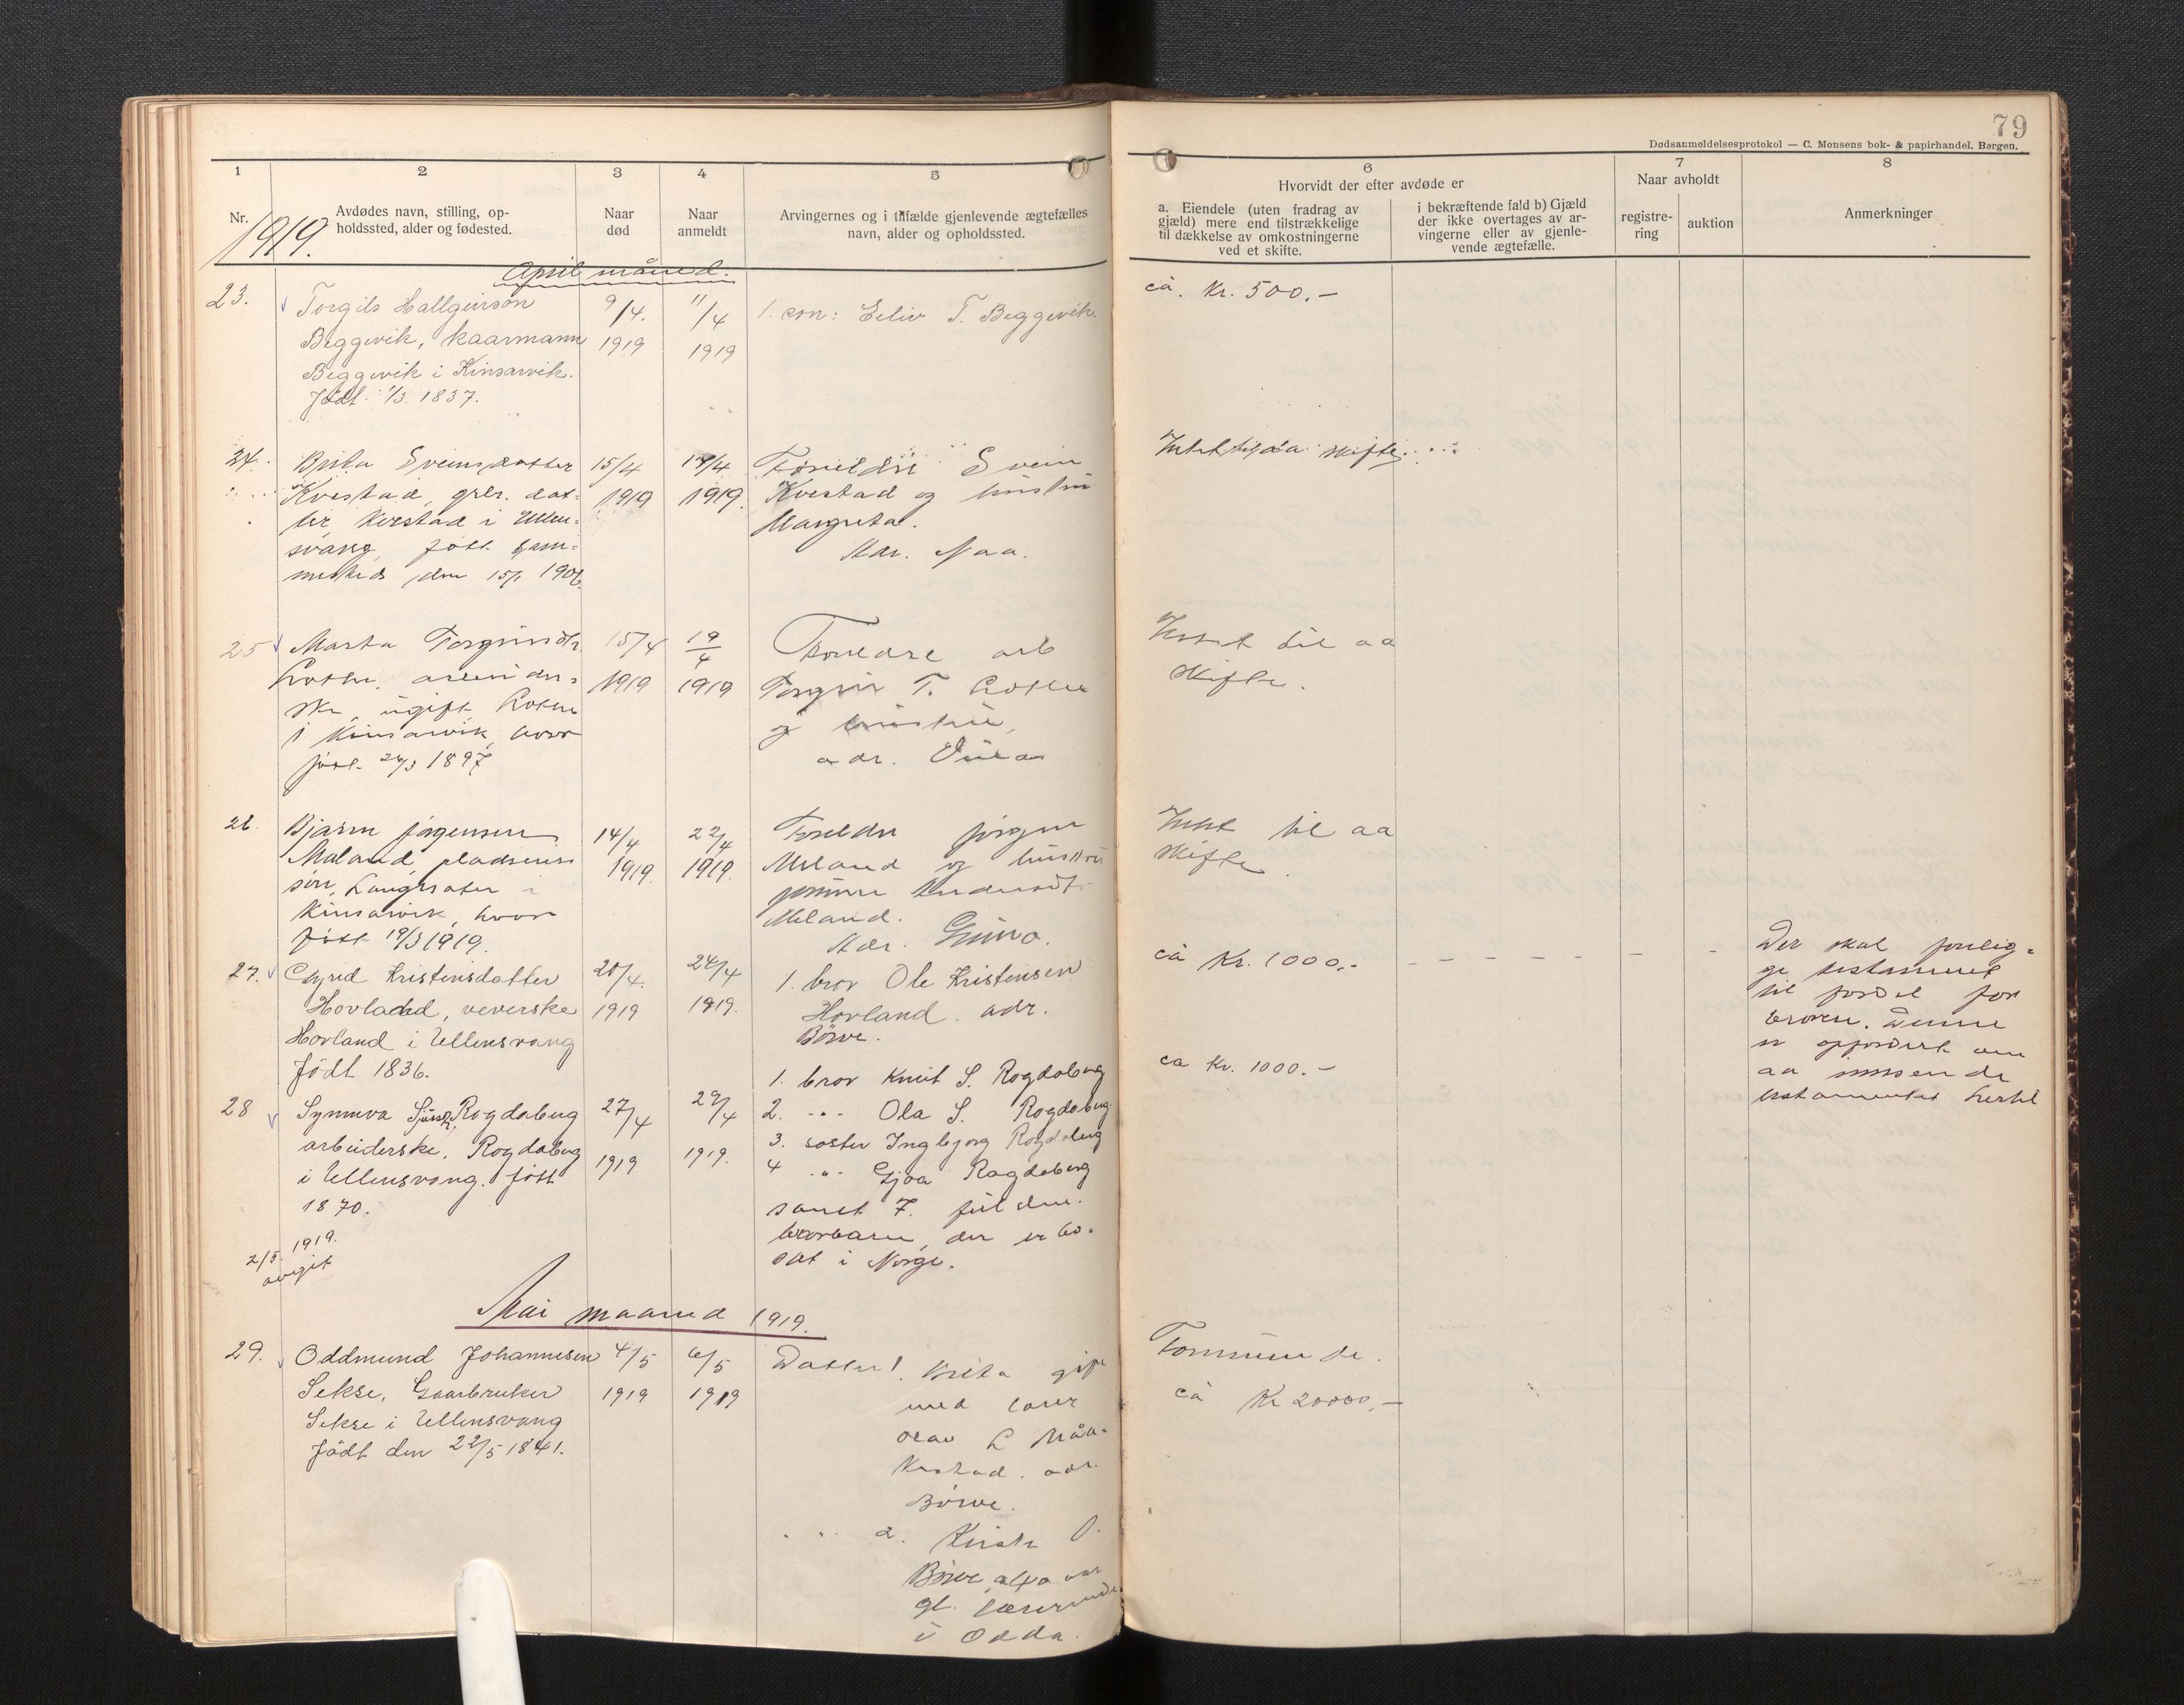 79
Dødsanmeldelsesprotokol — C. Monsens bok- & papirhandel, Bergen.
1
2
3
4
5
6
7
8
Nr.
Avdødes navn, stilling, op-
holdssted, alder og fødested.
Naar
død
Naar
anmeldt
Arvingernes og i tilfælde gjenlevende ægtefælles
navn, alder og opholdssted.
Hvorvidt der efter avdøde er
a. Eiendele (uten fradrag av
gjæld) mere end tilstrækkelige
til dækkelse av omkostningerne
ved et skifte.
i bekræftende fald b) Gjæld
der ikke overtages av ar-
vingerne eller av gjenle-
vende ægtefælle.
Naar avholdt
registre-
ring
auktion
Anmerkninger
1919.
April måned.
23.
Torgils Hallgeirson
Beggevik, kaarmann
Beggevik i Kinsarvik.
Født 1/3. 1837.
9/4.
1919
11/4
1919
1. søn: Eeliv T. Beggevik.
ca. Kr. 500.-
24.
Brita Sveinsdatter
Kvestad, grbr. dat-
ter Kvestad i Ullen-
svang, født sam-
mesteds den 15/1 1906.
15/4
1919
17/4
1919.
Foreldre Svein
Kvestad og hustru
Margreta.
Adr. Naa.
Intet til aa skifte.
25
Marta Torgeirsdtr.
Lothe, arbeider-
ske, ugift, Lothe
i Kinsarvik, hvor
født 26/3 1897
15/4
1919
19/4
1919
Foreldre arb
Torgeir T. Lothe
og hustru,
adr.
Intet til aa
skifte.
26.
Bjarne Jørgensen
Meland, pladsmans
søn, Langesater i
Kinsarvik, hvor
født 19/3 1919.
14/4
1919.
22/4
1919.
Foreldre Jørgen
Meland og hustru
Andersdtr
Meland.
Adr. Grimo.
Intet til aa
skifte.
27.
Kristensdatter
Hovland, veverske
Hovland i Ullensvang
Født 1836.
20/4.
1919
24/4
1919.
1. bror Ole Kristensen
Hovland. adr.
Börve.
ca Kr. 1000.-
Der skal forelig-
ge testament
til fordel for
broren. Denne
er opfordret om
aa innsende
testamentet hertil
28
Synneva Rogdaberg
arbeiderske, Rogdaberg
i Ullensvang. født
1870.
27/4
1919
29/4
1919.
1. bror Knut S. Rogdaberg
2. -"- Ola S. Rogdaberg
3. søster Ingbjørg Rogdaberg
4 -"- Gjøa Rogdaberg
samt 7. fuldm.
brorbarn, der er bo-
sat i Norge.
ca Kr. 1000.-
2/5. 1919.
avgit
Mai maaned 1919.
29.
Oddmund Johannesen
Sekse, Gaarbruker
Sekse i Ullensvang
Født den 22/5 1841.
4/5
1919
6/5
1919
Datter 1. Brita gift
med lærer
Olav L Måa-
kestad. adr.
Børve.
2. Kirste O.
Børve,
gl. lærerinde
i Odda.
Formuende.
ca Kr 20000.-